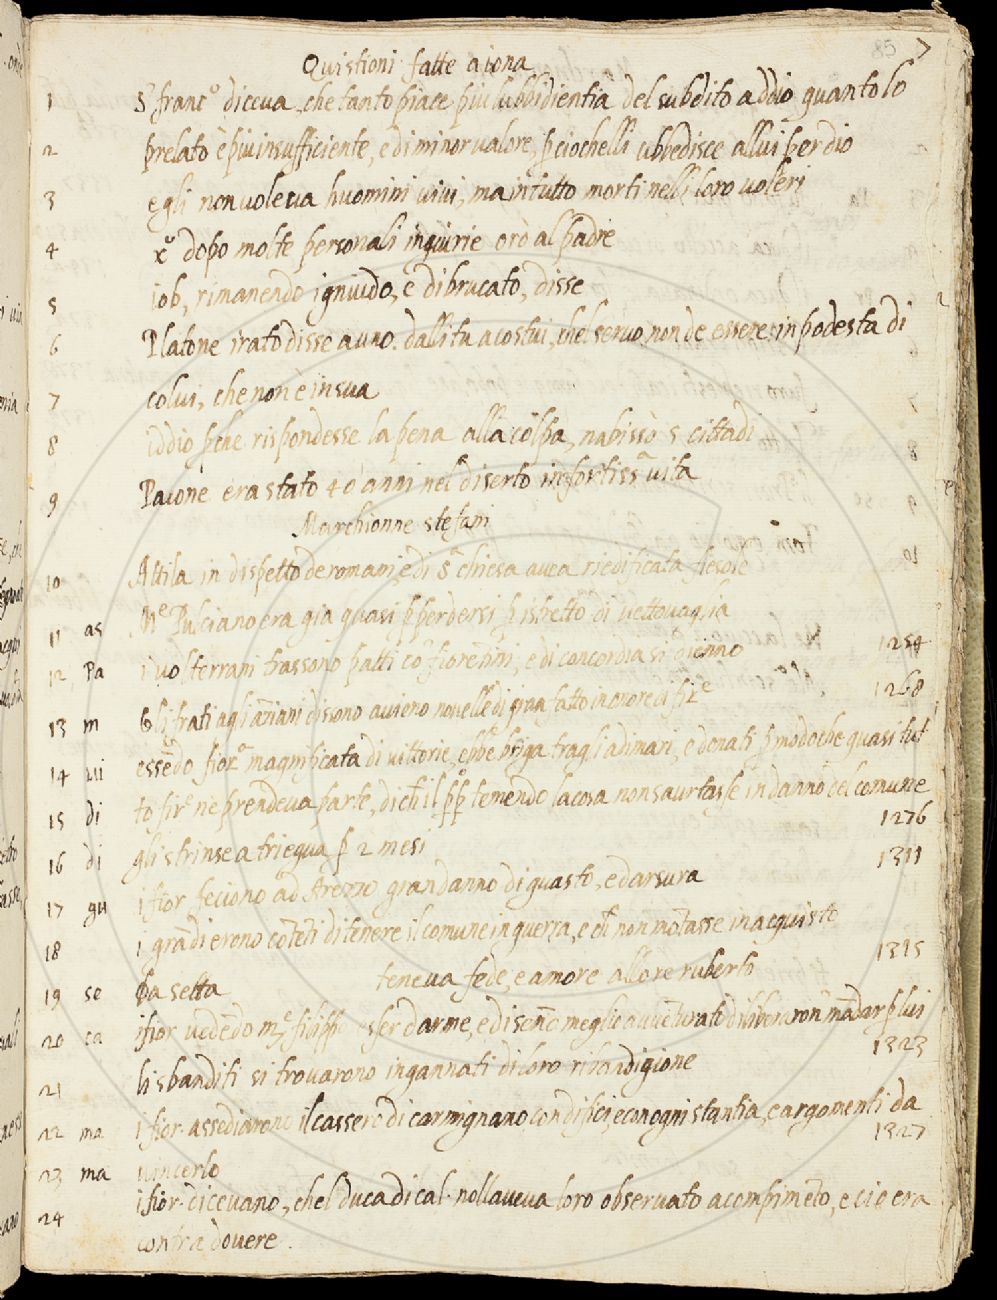 85 7
Quistioni fatte a iona
1 S. franc.º diceva, che tanto piace piu lubbidientia del subdito a ddio quanto lo
2 prelato è piu insufficiente, e di minor valore, p ciochelli ubbedisce allui per dio
3 egli non voleva huomini vivi, ma in tutto morti nelli loro voleri
4 xº dopo molte personali ingiurie orò al padre
5 iob, rimanendo igniudo, e dibrucato, disse
6 Platone irato disse a uno. dalli tu a costui, chel servo non de essere in podesta di
7 colui, che non e in sua
8 iddio pche rispondesse la pena alla colpa, nabissò 5 cittadi
9 Paione era stato 40 anni nel diserto in fortissa vita
Marchionne stefani
10 Attila in dispetto de romani e di Sa chiesa avea riedificata fiesole
11 as Me Pulciano era gia quasi p perdersi p ispetto di vettovaglia
12 pa i volterrani trassono patti cō fiorentini, e di concordia si dienno 1254
13 m Gli frati agli anziani dissono avieno novelle di pnaa fatto in onore di fire 1268
14 vi essēdo fiore magnificata di vittorie, ebbe briga tra gli adimari, e donati p modo che quasi tut
15 di to fire ne prendeva parte, di che il pp temendo la cosa non saurtasse in danno del comune
16 di gli strinse a triegua p 2 mesi 1276
17 gu i fior feciono ad Arezzo gran danno di guasto, e darsura 1311
18 i grādi erono cōtēti di tenere il comune in guerra, e che non mōtasse in acquisto
19 se Pa setta teneva fede, e amore allo re ruberto 1315
20 ca i fior vedēdo m.e filippo esser darme, e di senno meglio avvēturati diliberaronº mādar p lui
21 li sbanditi si trovarono ingannati di loro ribandigione 1323
22 ma i fior assediarono il cassero di carmignano con dificii, e con ogni stantia, e argomenti da
23 ma vincerlo 1327
24 i fior. dicevano, chel duca di cal. nollaveva loro observato a compimēto, e cio era
contra dovere.